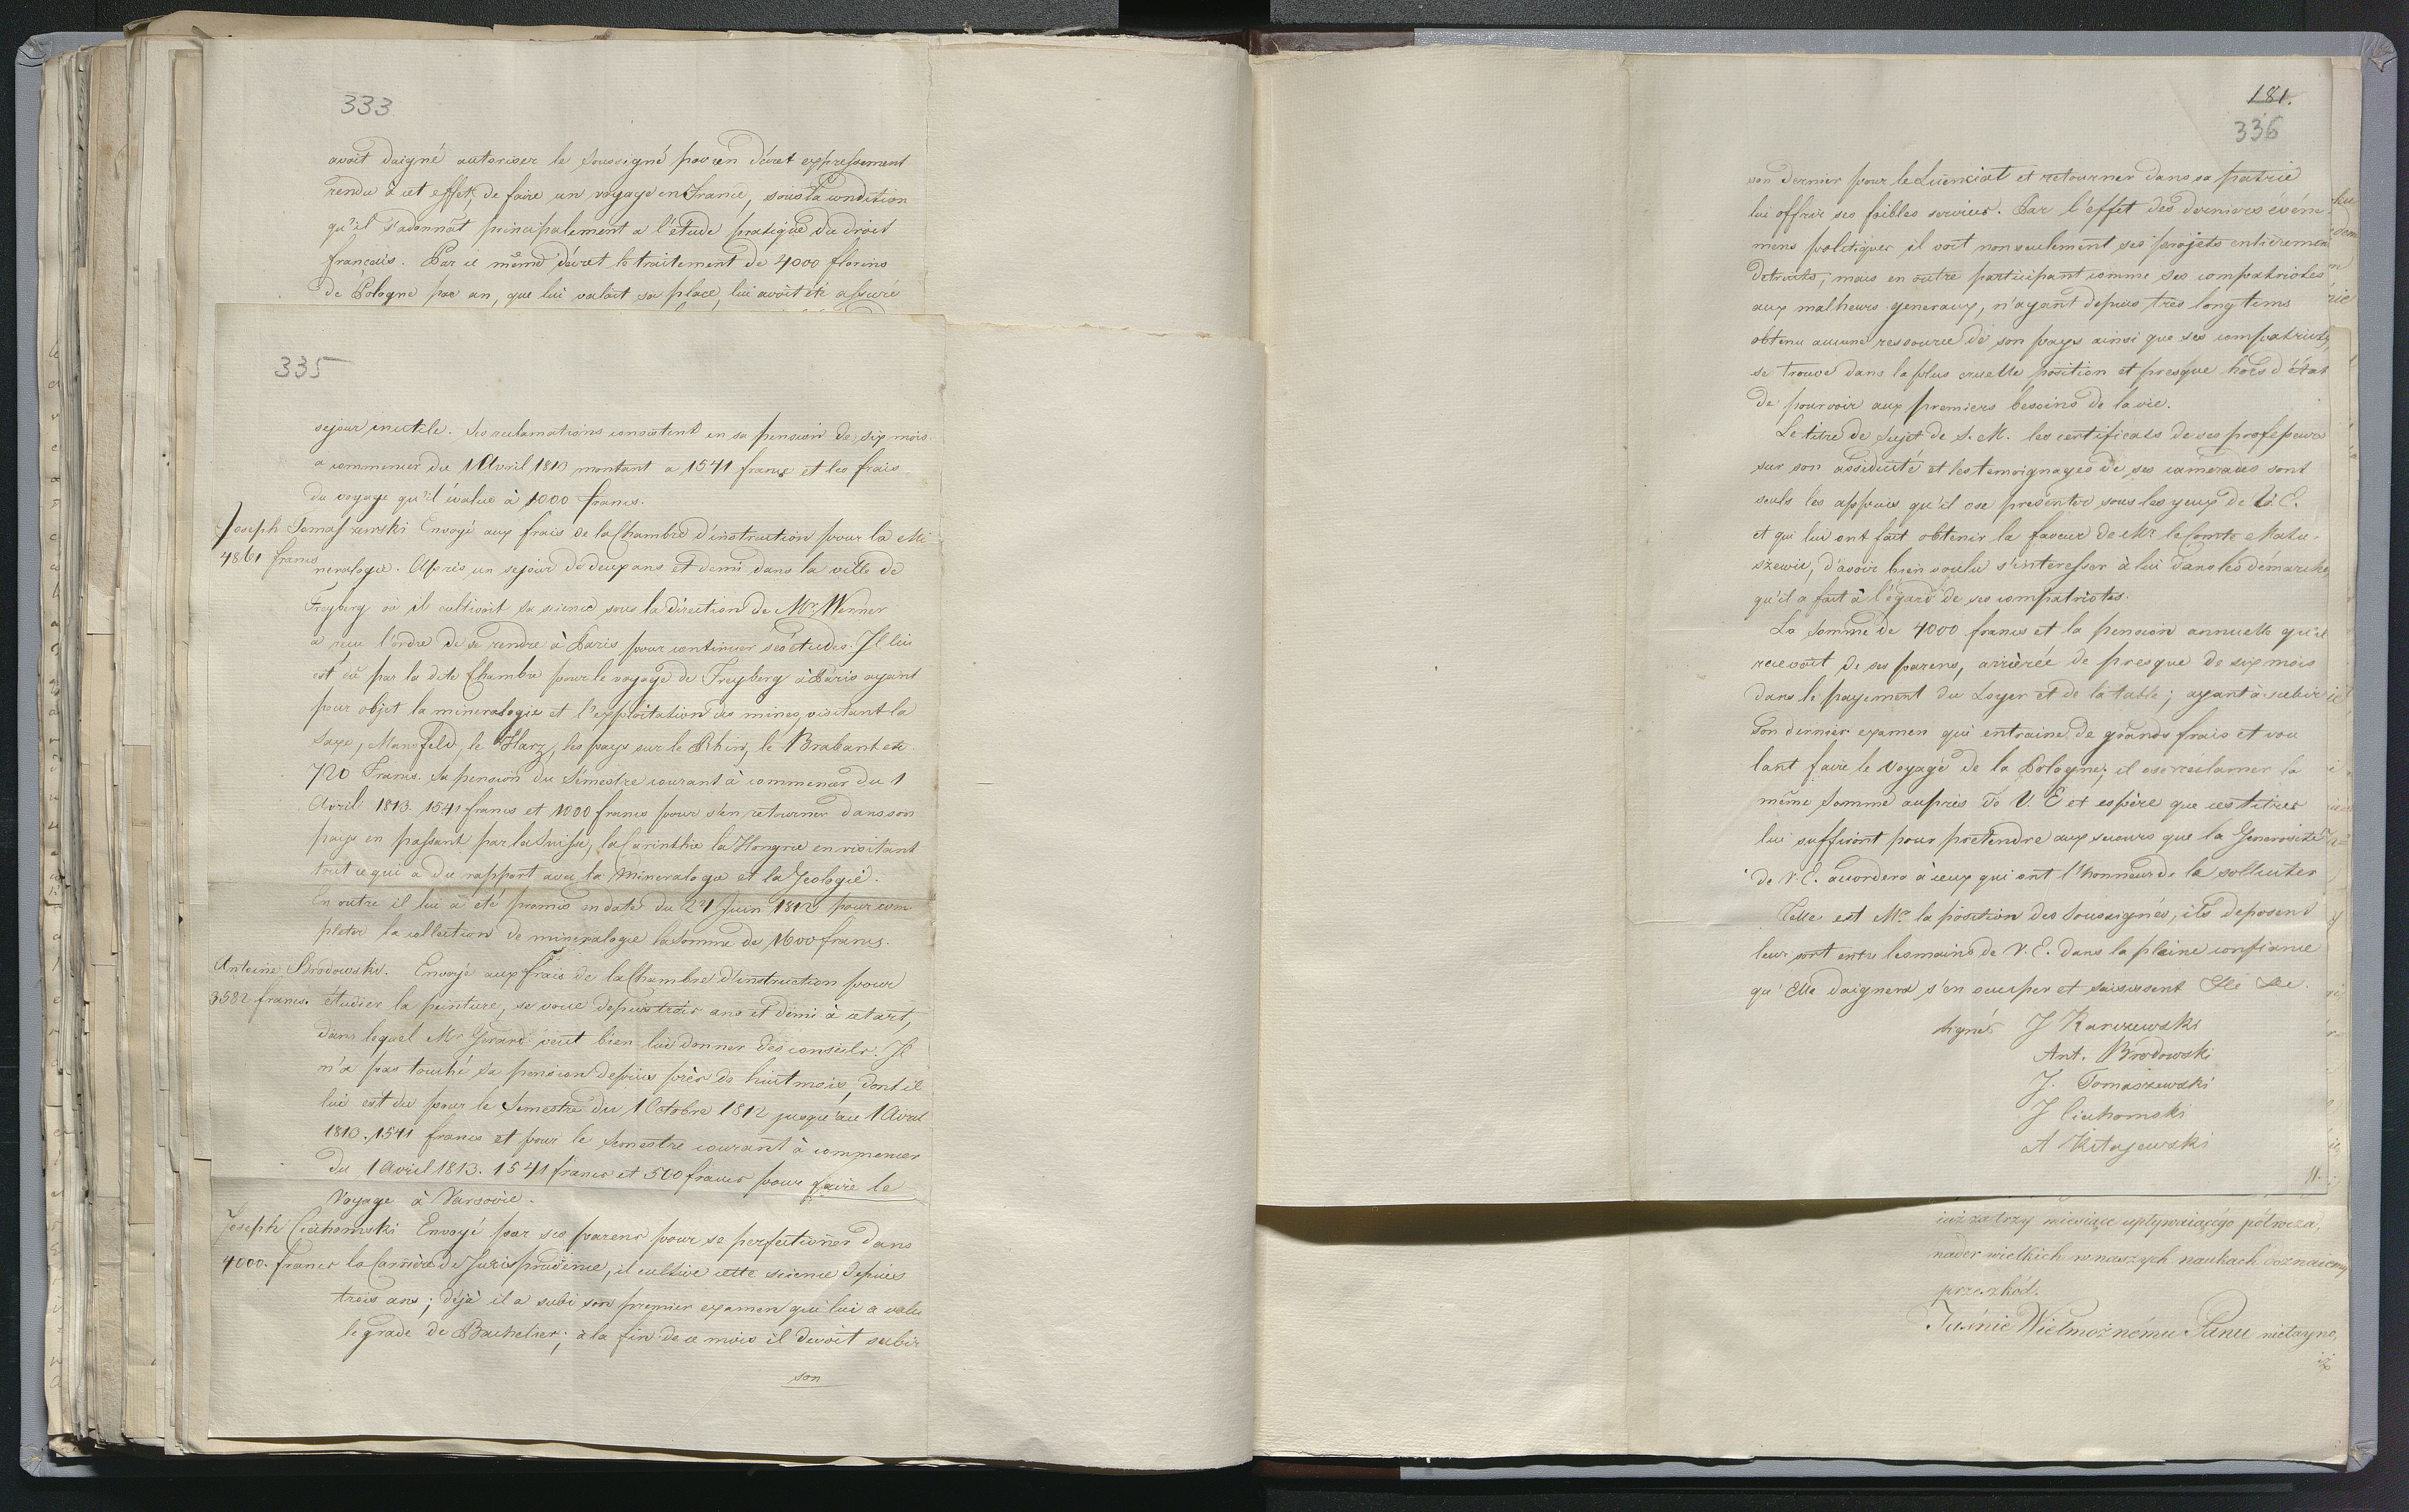 333
avoit daigné autoriser le soussigné par un décret expressement
rendu à cet effet, de faire un voyage en France, sous la condition
qu'il s'adonnât principalement a l'étude pratique du droit
français. Par ce même décret le traitement de 4000 florins
de Pologne par an, que lui valait sa place, lui avoit été assuré
335
sejour inutile. Ses reclamations consistent en sa pension de six mois
a commencer du 1 Avril 1813 montant a 1541 francs et les frais
du voyage qu'il évalue à 1000 francs.
Joseph Tomaszewski Envoyé aux frais de la Chambre d'instruction pour la Mi
4861 francs neralogie. Après un sejour de deux ans et demi dans la ville de
Freyberg où il cultivoit sa science sous la direction de Mr. Werner
a reçu l'ordre de se rendre à Paris pour continuer ses études. Il lui
est dû par la dite Chambre pour le voyage de Freyberg à Paris ayant
pour objet la mineralogie et l'exploitation des mines, visitant la
Saxe, Mansfeld, le Harz, les pays sur le Rhin, le Brabant etc
720 Francs. Sa pension du Semestre courant à commencer du 1
Avril 1813. 1541 francs et 1000 francs pour s'en retourner dans son
pays en passant par la Suisse, la Carinthie la Hongrie en visitant
tout ce qui a du rapport avec la Mineralogie et la Geologie.
En outre il lui a été promis en date du 24 Juin 1812 pour com
pleter la collection de mineralogie la somme de 1600 francs.
Antoine Brodowski. Envoyé aux frais de la Chambre d'instruction pour
3582 francs. étudier la peinture, se voue depuis trois ans et demi à cet art,
dans lequel Mr Gerard veut bien lui donner des conseils. Il
n'a pas touché sa pension depuis près de huit mois, dont il
lui est du pour le Semestre du 1 Octobre 1812 jusqu'au 1 Avril
1813. 1541 francs et pour le semestre courant à commencer
du 1 Avril 1813. 1541 francs et 500 francs pour faire le
Voyage à Varsovie.
Joseph Ciechomski Envoyé par ses parens pour se perfectionner dans
4000. francs la Carrière de Jurisprudence, il cultive cette science depuis
trois ans; déjà il a subi son premier examen qui lui a valu
le grade de Bachelier; à la fin de ce mois il devoit subir
son
181.
336
son dernier pour le Licenciat et retourner dans sa patrie
lui offrir ses foibles services. Par l'effet des derniers evéne-
mens politiques il voit non seulement ses projets entièrement
detruits, mais en outre participant comme ses compatriotes
aux malheurs generaux, n'ayant depuis tres long tems
obtenu aucune ressource de son pays ainsi que ses compatriotes,
se trouve dans la plus cruelle position et presque hors d'état
de pourvoir aux premiers besoins de la vie.
Le titre de Sujet de S. M. les certificats de ses professeurs
sur son assiduité et les temoignages de ses camerades sont
seuls les appuis qu'il ose présenter sous les yeux de V. E.
et qui lui ont fait obtenir la faveur de Mr. le Comte Matu-
szewic, d'avoir bien voulu s'interesser à lui dans les démarches
qu'il a fait à l'égard de ses compatriotes.
La somme de 4000 francs et la pension annuelle qu'il
recevoit de ses parens, arriérée de presque de six mois
dans le payement du Loyer et de la table; ayant à subir
son dernier examen qui entraine de grands frais et vou
lant faire le Voyage de la Pologne; il ose reclamer la
même somme auprès de V. E et espère que ces titres
lui suffiront pour pretendre aux secours que la Generosité
de V. E. accordera à ceux qui ont l'honneur de la solliciter
Telle est Mr. la position des soussignés, ils deposent
leur sort entre les mains de V. E. dans la pleine confiance
qu'Elle daignera s'en occuper et saisissent
signés J Karczewski
Ant. Brodowski
J. Tomaszewski
J Ciechomski
A Kitajewski
11.
iuż za trzy miesiące upływaiącego półrocza,
nader wielkich w naszych naukach doznaiemy
przeszkód.
Jaśnie Wielmożnemu Panu nietayno,
iż